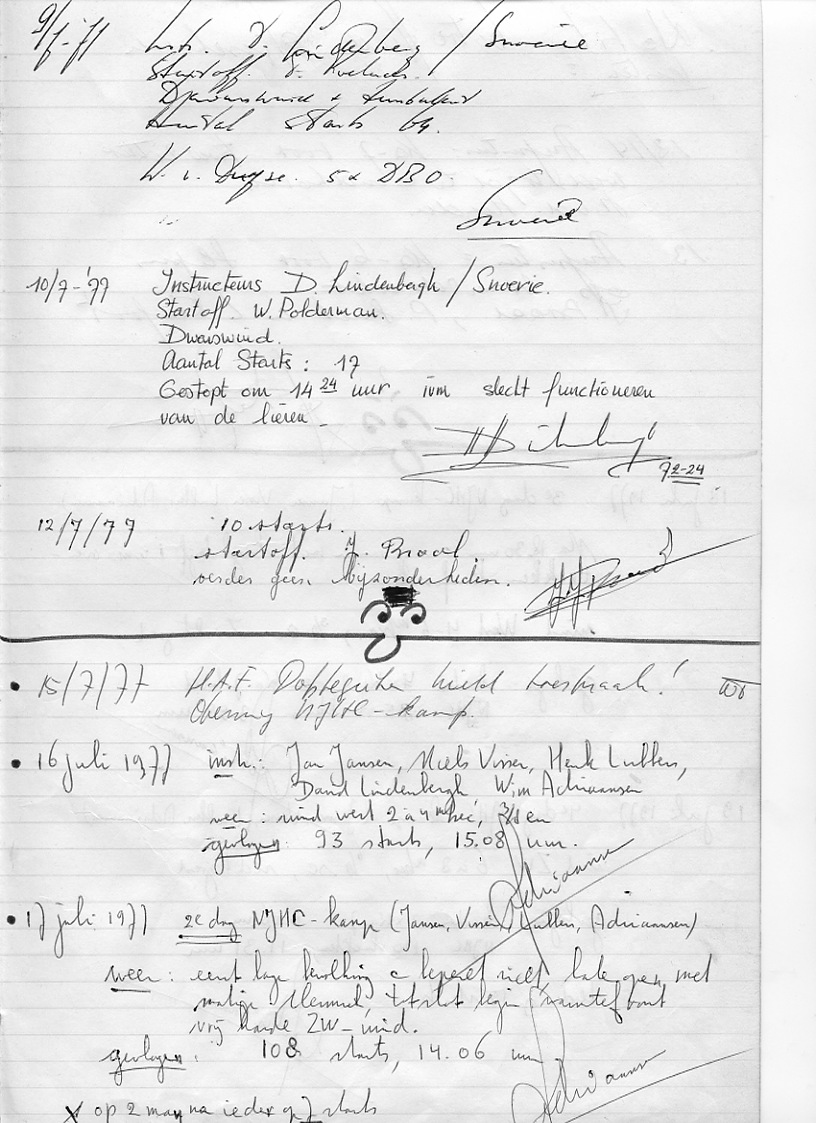 9/7-77 Instr. D. Lindenberg / Snoerie
Startoff.
Dwarswind
Aantal Starts 64.
W. v. 5x DBO.
Snoerie
10/7-'77 Instructeurs D. Lindenbergh / Snoerie.
Startoff. W. Polderman.
Dwarswind.
Aantal Starts : 17
Gestopt om 14 24 uur ivm slecht functioneren
van de lieren -
72-24
12/7/77 10 starts.
startoff. J. Praal.
verder geen bijzonderheden.
• 15/7/77 H.A.F. hield toespraak!
NJHC-kamp.
• 16 juli 1977 instr.: Jan Jansen, Niels Visser, Henk Lubbers,
David Lindenbergh Wim Adriaansen
weer : wind west 2 à 4 m/sec,
gevlogen: 93 starts, 15.08 uur.
Adriaansen
• 17 juli 1977 2e dag NJHC-kamp (Jansen, Visser, Lubbers, Adriaansen)
weer : eerst lage bewolking later open met
matige thermiek, tot slot
vrij harde ZW-wind.
gevlogen : 108 starts, 14.06 uur
Adriaansen
x op 2 man na ieder 7 starts